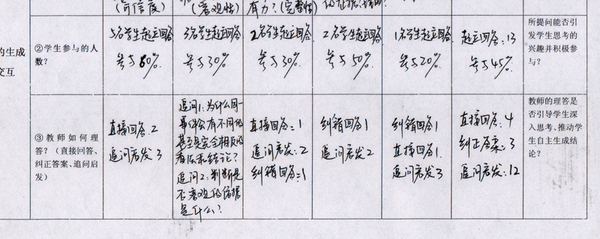 (可信度)
(客观性)
有力?(完整性)
的生成
交互
②学生参与的人
数?
5名学生起立回答
参与80%
3名学生起立回答
参与30%
2名学生起立回答
参与30%
2名学生起立回答
参与50%
1名学生起立回答
参与20%
起立回答:13
参与45%
所提问能否引
发学生思考的
兴趣并积极参
与?
③教师如何理
答?(直接回答、
纠正答案、追问启
发)
直接回答2
追问启发3
追问1:为什么同一
事件会有不同
甚至是完全相反
结论?
追问2:判断是
否客观的依据
是什么?
直接回答:1
追问启发:2
纠错回答:1
纠错回答1
追问启发2
纠错回答1
直接回答1.
追问启发3
直接回答:4
纠正答案:3
追问启发:12
教师的理答是
否引导学生深
入思考、推动学
生自主生成结
论?